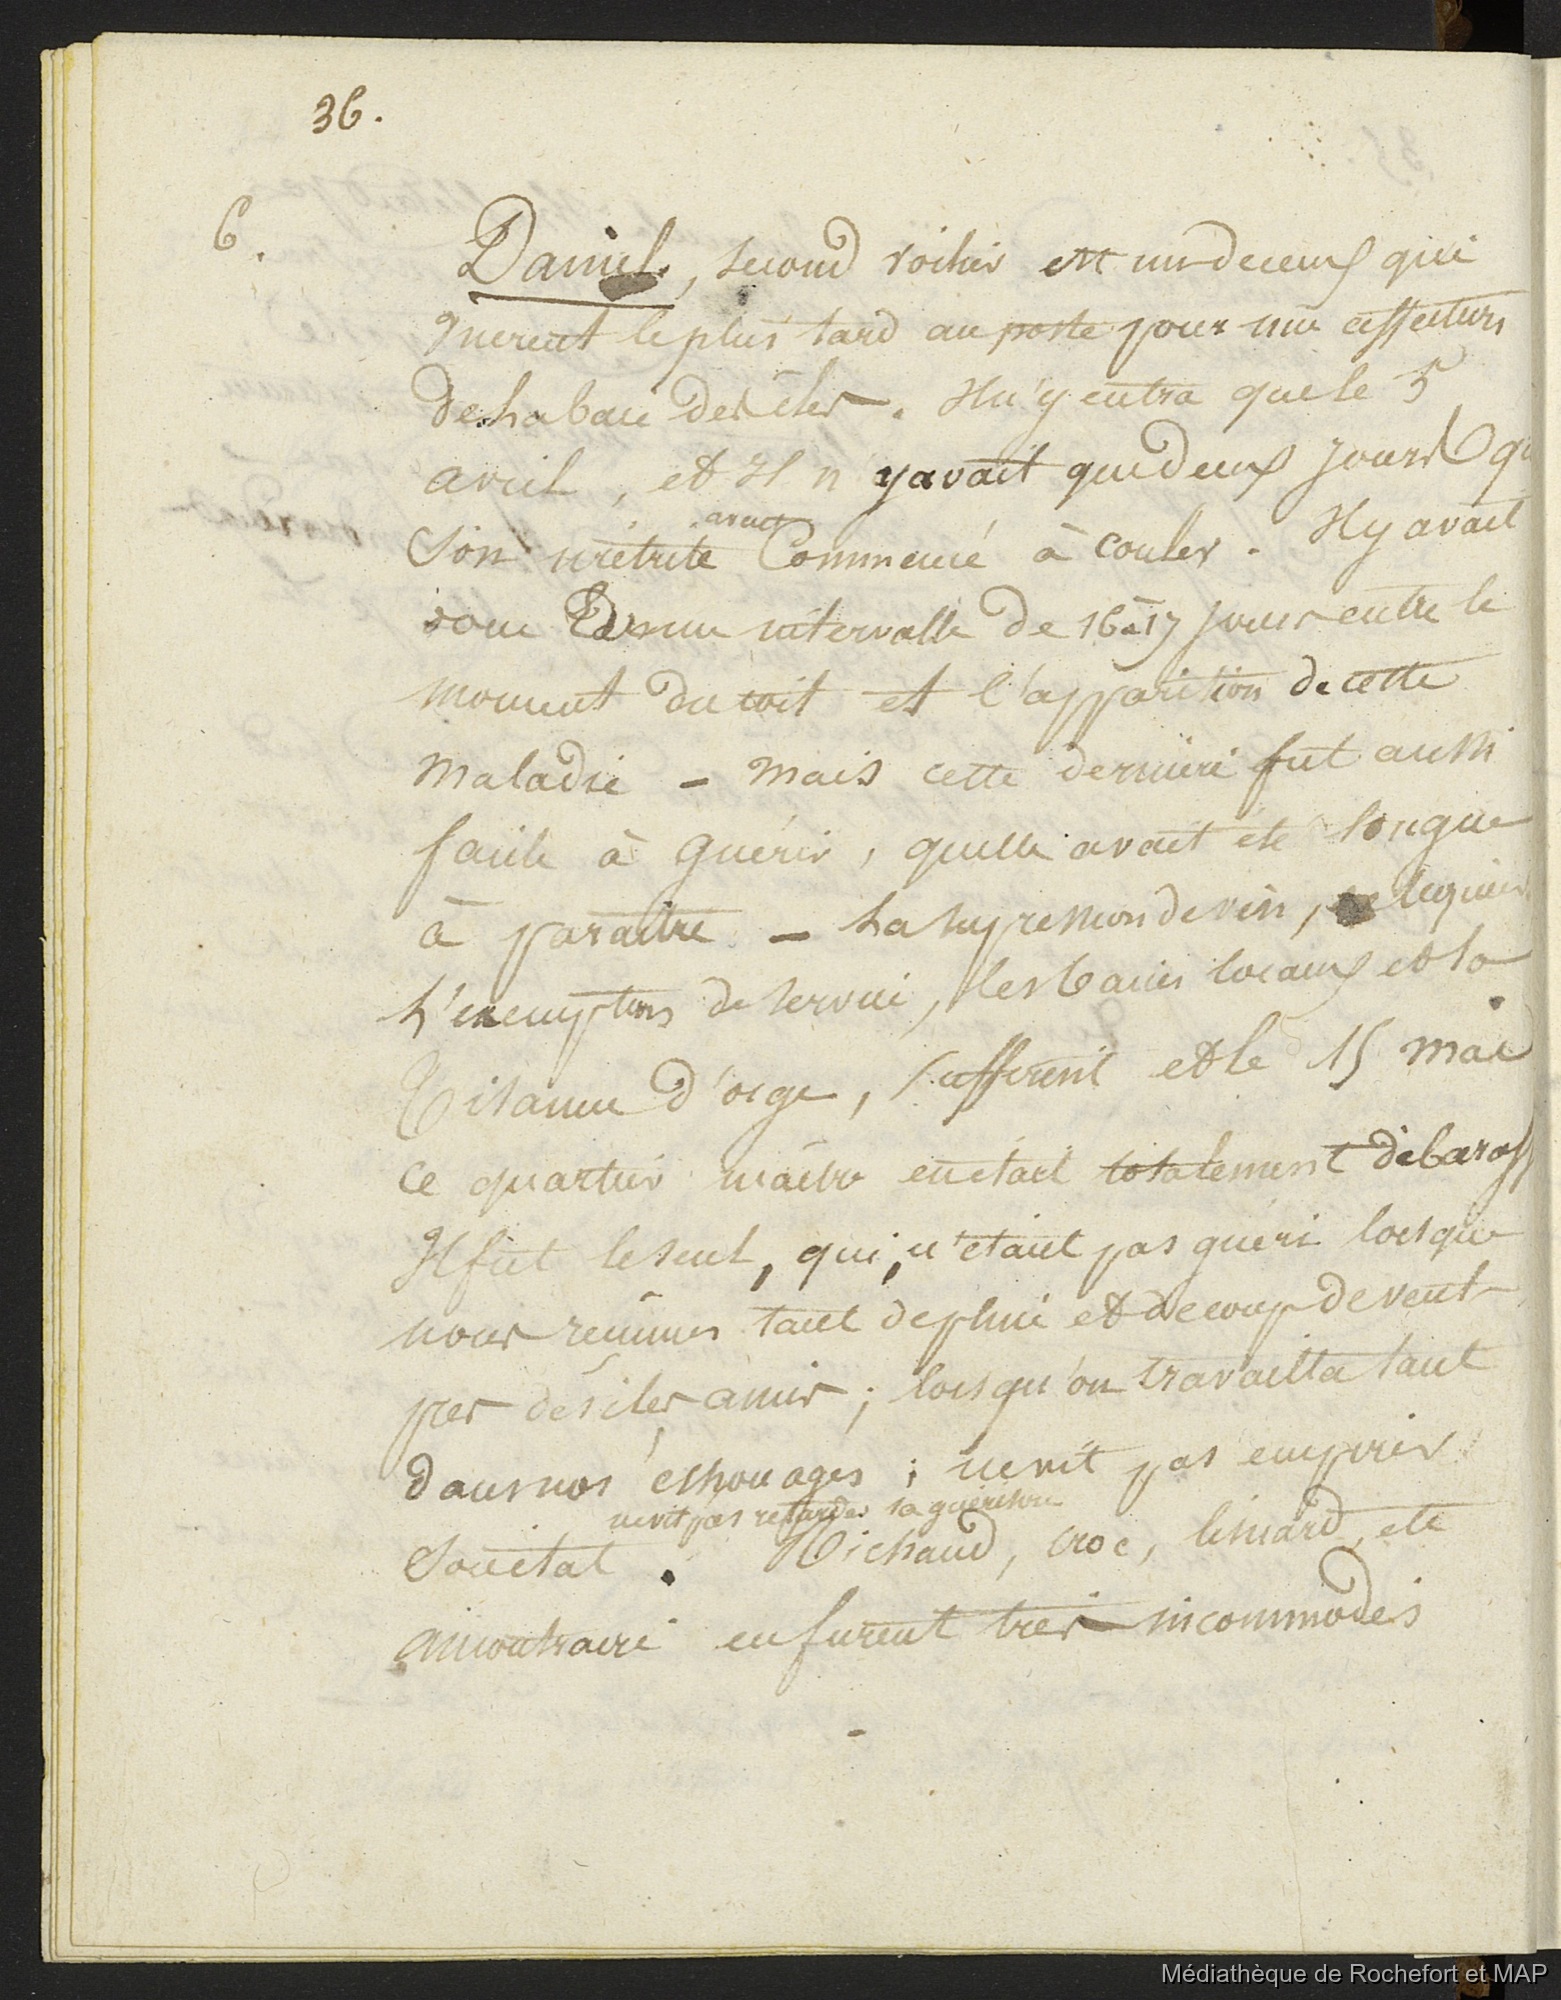 36.
6.
Daniel, second voilier est un de ceux qui
vinrent le plus tard au poste pour une affection
de la baie des îles. Il n'y entra que le 5
avril, et il n'y avait que deux jours qu
Son urétrite avait Commencé à couler. Il y avait
donc Eu un intervalle de 16 à 17 jours entre le
moment du coït et l'apparition de cette
maladie - Mais cette dernière fut aussi
facile à guérir, quelle avait été longue
à paraître - La supression de vin, legumes
L'exemption de service, les bains locaux et la
Tisanne d'orge, suffirent et le 15 mai
ce quartier maître en était totalement débarass
Il fut le seul, qui, n'étant pas guéri lorsque
nous reçumes tant de pluie et de coup de vent
pres des iles amis ; lorsqu'on travailla tant
dans nos échouages ; ne vit pas empirer
ne vit pas retarder sa guérison
Son état. Michaud, croc, limard, etc
au contraire en furent très incommodés
Médiathèque de Rochefort et MAP